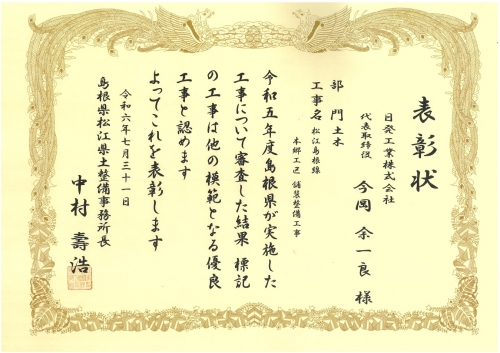 表彰状
日発工業株式会社
代表取締役
今岡 余一良 様
部 門 土木
工事名 松江島根線
本郷工区 舗装整備工事
令和五年度島根県が実施した
工事について審査した結果 標記
の工事は他の模範となる優良
工事と認めます
よってこれを表彰します
令和六年七月三十一日
島根県松江県土整備事務所長
中村 壽浩